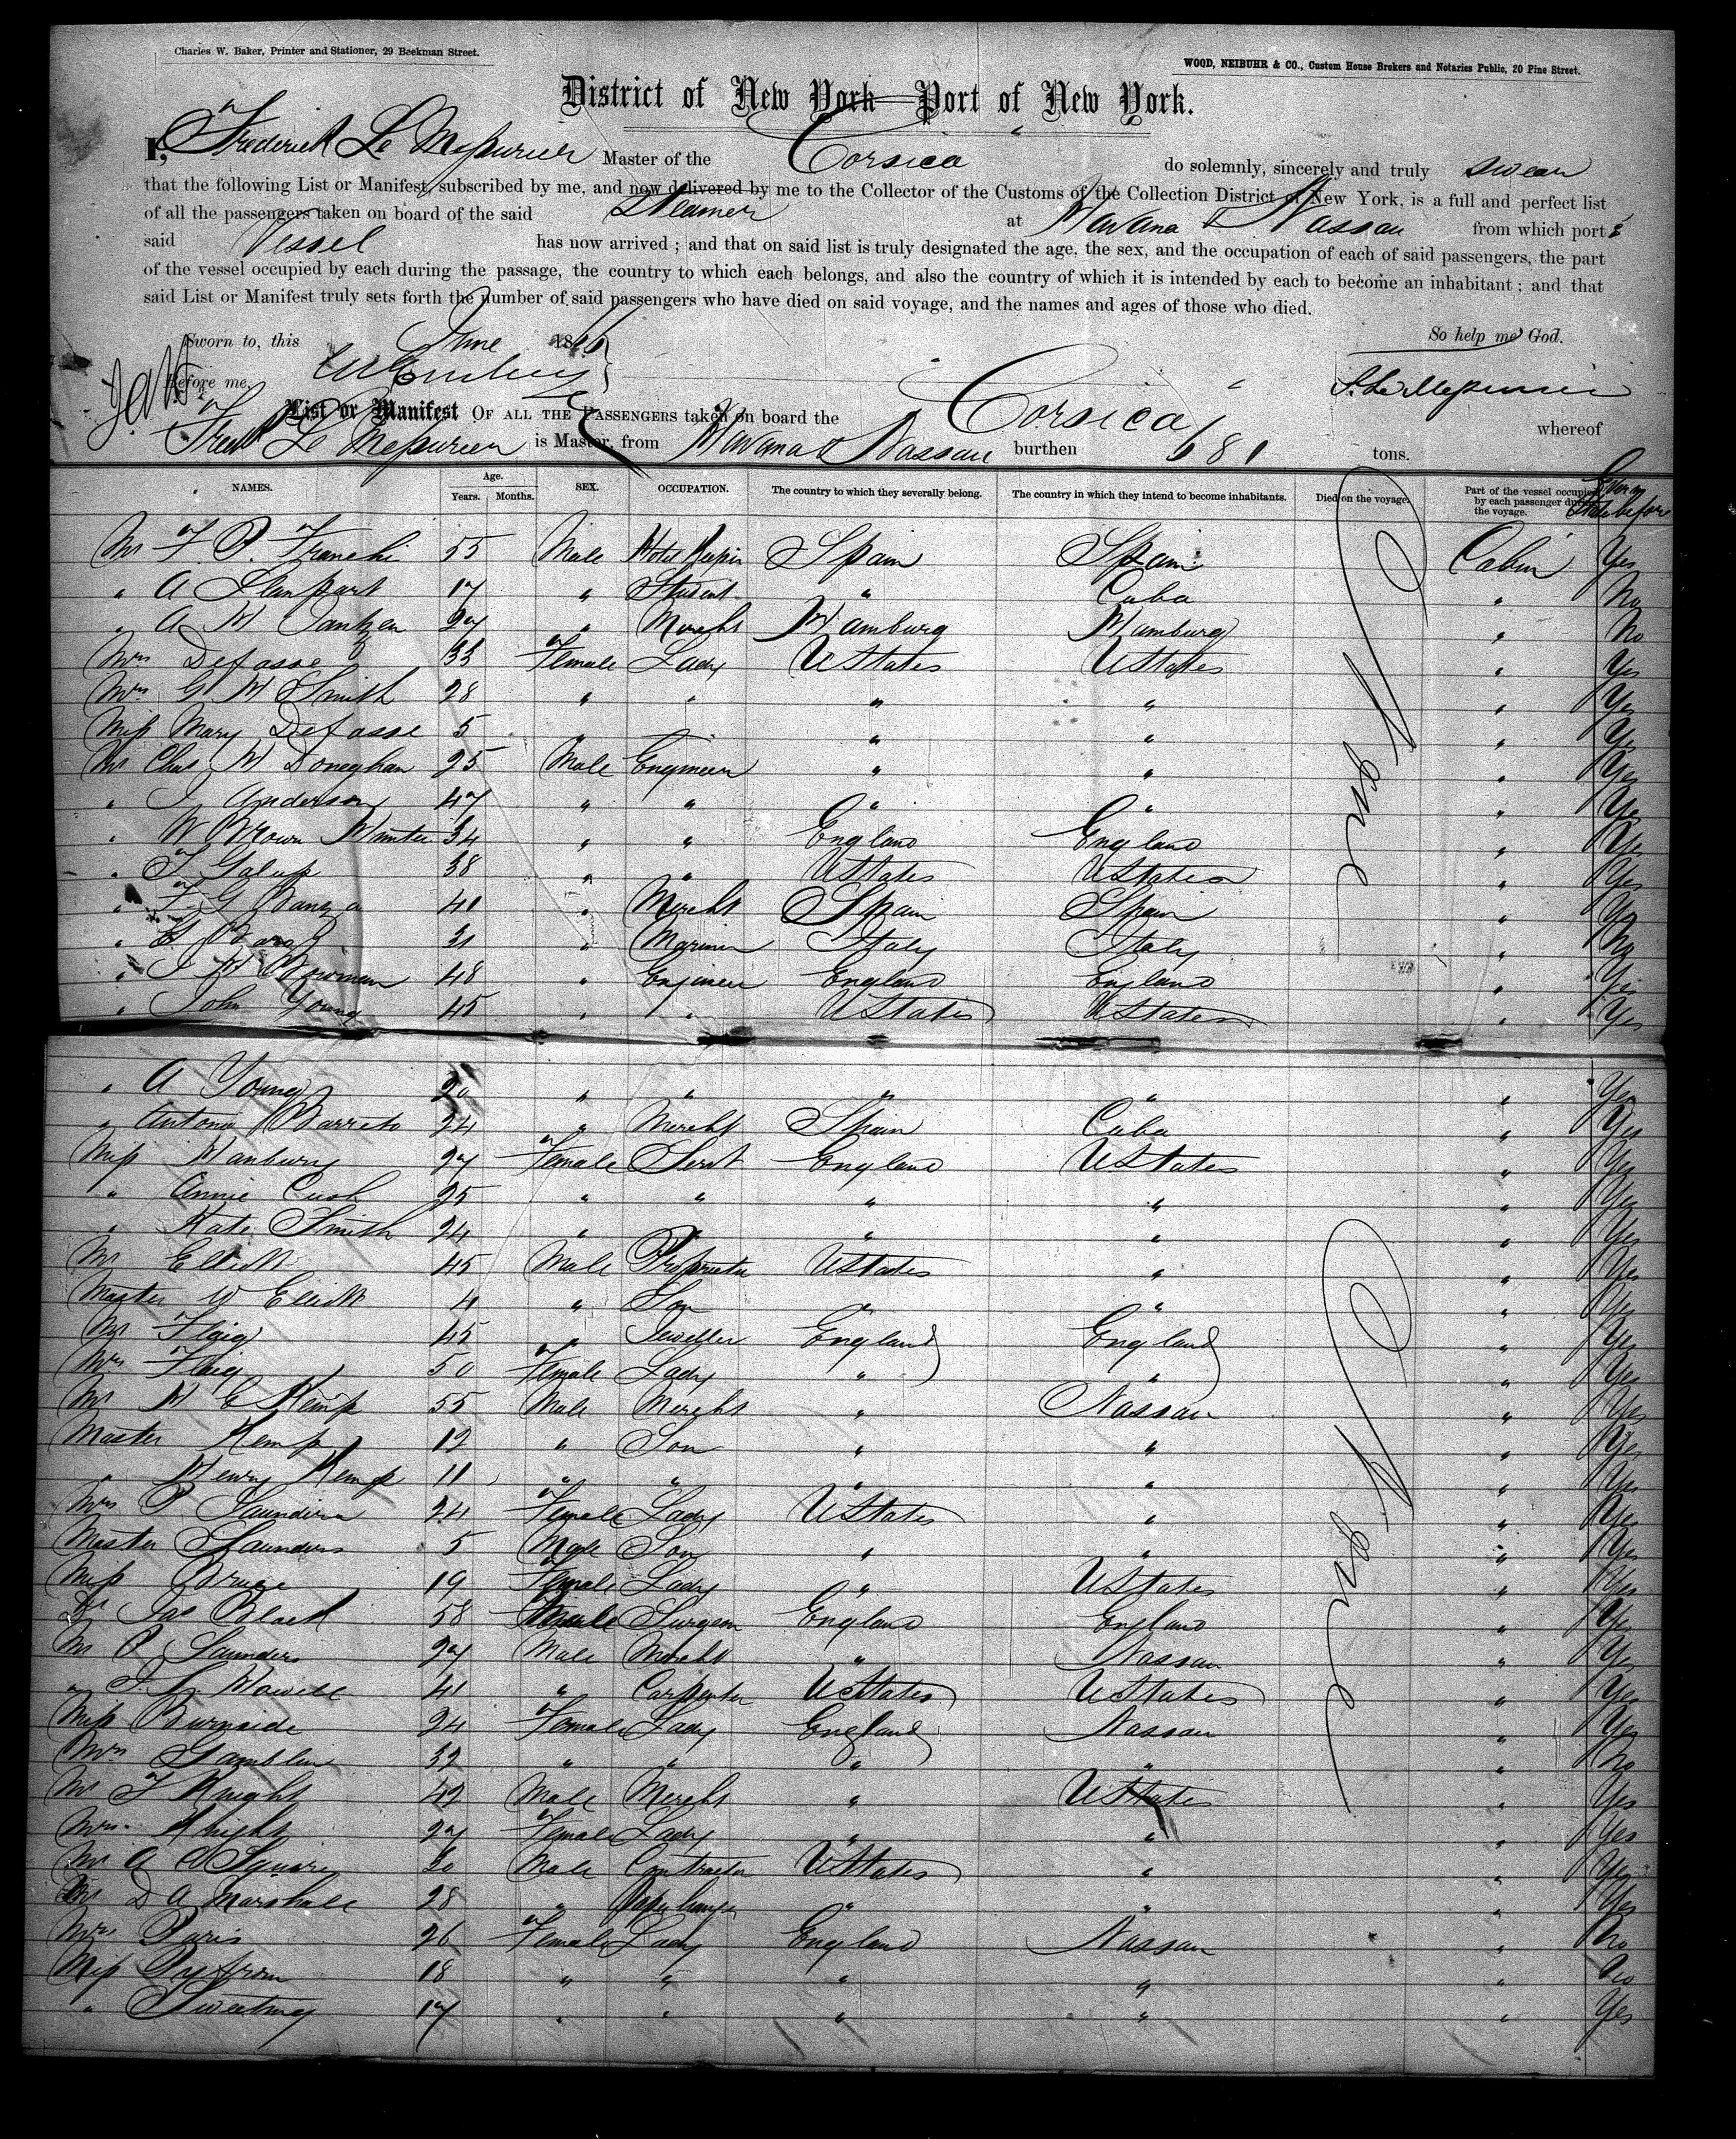 Charles W. Baker, Printer and Stationer, 29 Beekman Street.
WOOD, NEIBUHR & CO., Custom House Brokers and Notaries Public, 20 Pine Street.
District of New York—Port of New York.
I, Frederick Le Mesurier Master of the Corsica do solemnly, sincerely and truly swear
that the following List or Manifest, subscribed by me, and now delivered by me to the Collector of the Customs of the Collection District of New York, is a full and perfect list
of all the passengers taken on board of the said Steamer at Havana & Nassau from which port s
said Vessel has now arrived ; and that on said list is truly designated the age, the sex, and the occupation of each of said passengers, the part
of the vessel occupied by each during the passage, the country to which each belongs, and also the country of which it is intended by each to become an inhabitant ; and that
said List or Manifest truly sets forth the number of said passengers who have died on said voyage, and the names and ages of those who died.
Sworn to, this June 1866 So help me God.
Before me, F. Le Mesurier
List or Manifest OF ALL THE PASSENGERS taken on board the Corsica whereof
Fred Le Mesurier is Master, from Havana & Nassau burthen 681 tons.
NAMES. Age. Years. Months. SEX. OCCUPATION. The country to which they severally belong. The country in which they intend to become inhabitants. Died on the voyage. Part of the vessel occupied by each passenger during the voyage.
Mr F. P. Franchi 55 Male Hotel Keeper Spain Spain Cabin Yes
" A 17 " Student " Cuba " No
" A H Jantzen 27 " Mercht Hamburg Hamburg " No
Mrs Defasse 33 Female Lady U States U States " Yes
Mrs G H Smith 28 " " " " " Yes
Miss Mary Defasse 5 " " " " Yes
Mr Chas H Doneghan 25 Male Engineer " " " Yes
" J Anderson 47 " " " " " Yes
" W Brown Hunter 34 " " England England " Yes
" T Galup 38 " " U States U States " Yes
" F G Banza 41 " Mercht Spain Spain " Yes
" 31 " Mariner Italy Italy " No
" J H Bowman 48 " Engineer England England " Yes
" John Young 45 " " U States U States " Yes
None
" A Young 20 " " " " " Yes
" Antonio Barreto 24 " Mercht Spain Cuba " Yes
Miss Hanbury 27 Female Servt England U States " Yes
" Annie Cush 25 " " " " " Yes
" Kate Smith 24 " " " " " Yes
Mr Elliott 45 Male Proprietor U States " " Yes
Master W Elliott 4 " Son " " " Yes
Mr Flaig 45 " Jeweller England England " Yes
Mrs Flaig 50 Female Lady " " " Yes
Mr H C Kemp 55 Male Mercht " Nassau " Yes
Master Kemp 12 " Son " " " Yes
" Henry Kemp 11 " " " " " Yes
Mrs P Saunders 24 Female Lady U States " " Yes
Master Saunders 5 Male Son " " " Yes
Miss Bruce 19 Female Lady " U States " Yes
Dr Jas Black 58 Male Surgeon England England " Yes
Mr P Saunders 27 Male Mercht " Nassau " Yes
" J. L. Howell 41 " Carpenter U States U States " Yes
Miss Burnside 24 Female Lady England Nassau " Yes
Mrs Gamblin 32 " " " " " No
Mr T Knight 42 Male Mercht " U States " Yes
Mrs Knight 27 Female Lady " " " Yes
Mr A C Squires 30 Male Contractor U States " " Yes
Mr D A Marshall 28 " Paper hanger " " " Yes
Mrs Paris 26 Female Lady England Nassau " No
Miss Pyfrom 18 " " " " " No
" Sweeting 17 " " " " " Yes
None